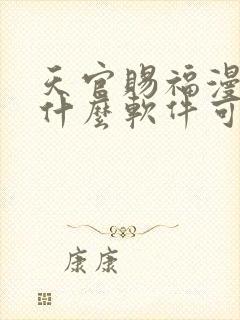 天官賜福漫
什麼軟件可
康康